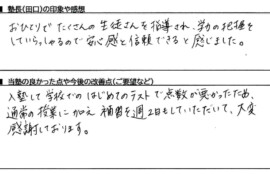 塾長(田口)の印象や感想
おひとりでたくさんの生徒さんを指導され、学力の把握を
していらっしゃるので安心感と信頼できると感じました。
当塾の良かった点や今後の改善点(ご要望など)
入塾して学校でのはじめてのテストで点数が良かったため、
通常の授業に加え補習を週2日もしていただいて、大変
感謝しております。